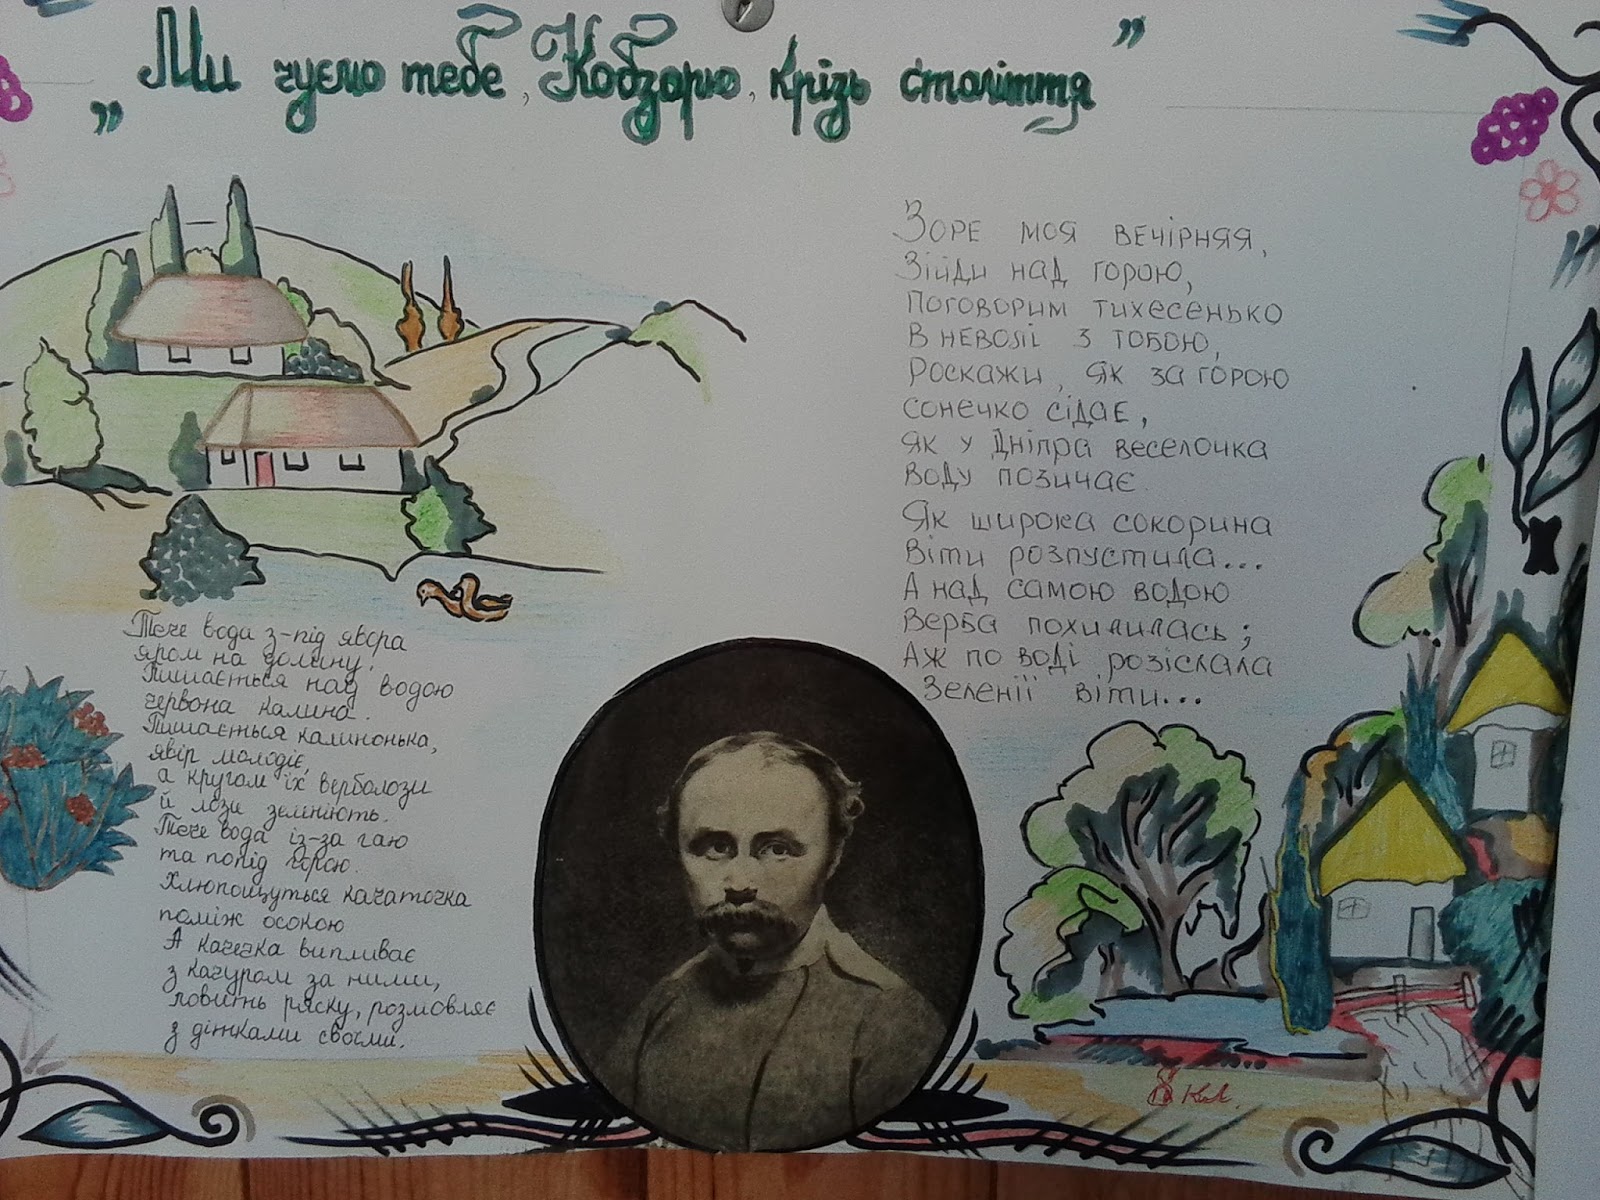 „Ми чуємо тебе, Кобзарю, крізь століття”
Зоре моя вечірняя,
Зійди над горою,
Поговорим тихесенько
В неволі з тобою,
Роскажи, як за горою
Сонечко сідає,
Як у Дніпра веселочка
Воду позичає.
Як широка сокорина
Віти розпустила...
А над самою водою
Верба похилилась;
Аж по воді розіслала
Зеленії віти...
Тече вода з-під явора
яром на долину.
Пишається над водою
червона калина.
Пишається калинонька,
явір молодіє,
а кругом їх верболози
й лози зеленіють.
Тече вода із-за гаю
та попід горою.
Хлюпощуться качаточка
поміж осокою
А качечка випливає
з качуром за ними,
ловить ряску, розмовляє
з дітками своїми.
8 Кл.